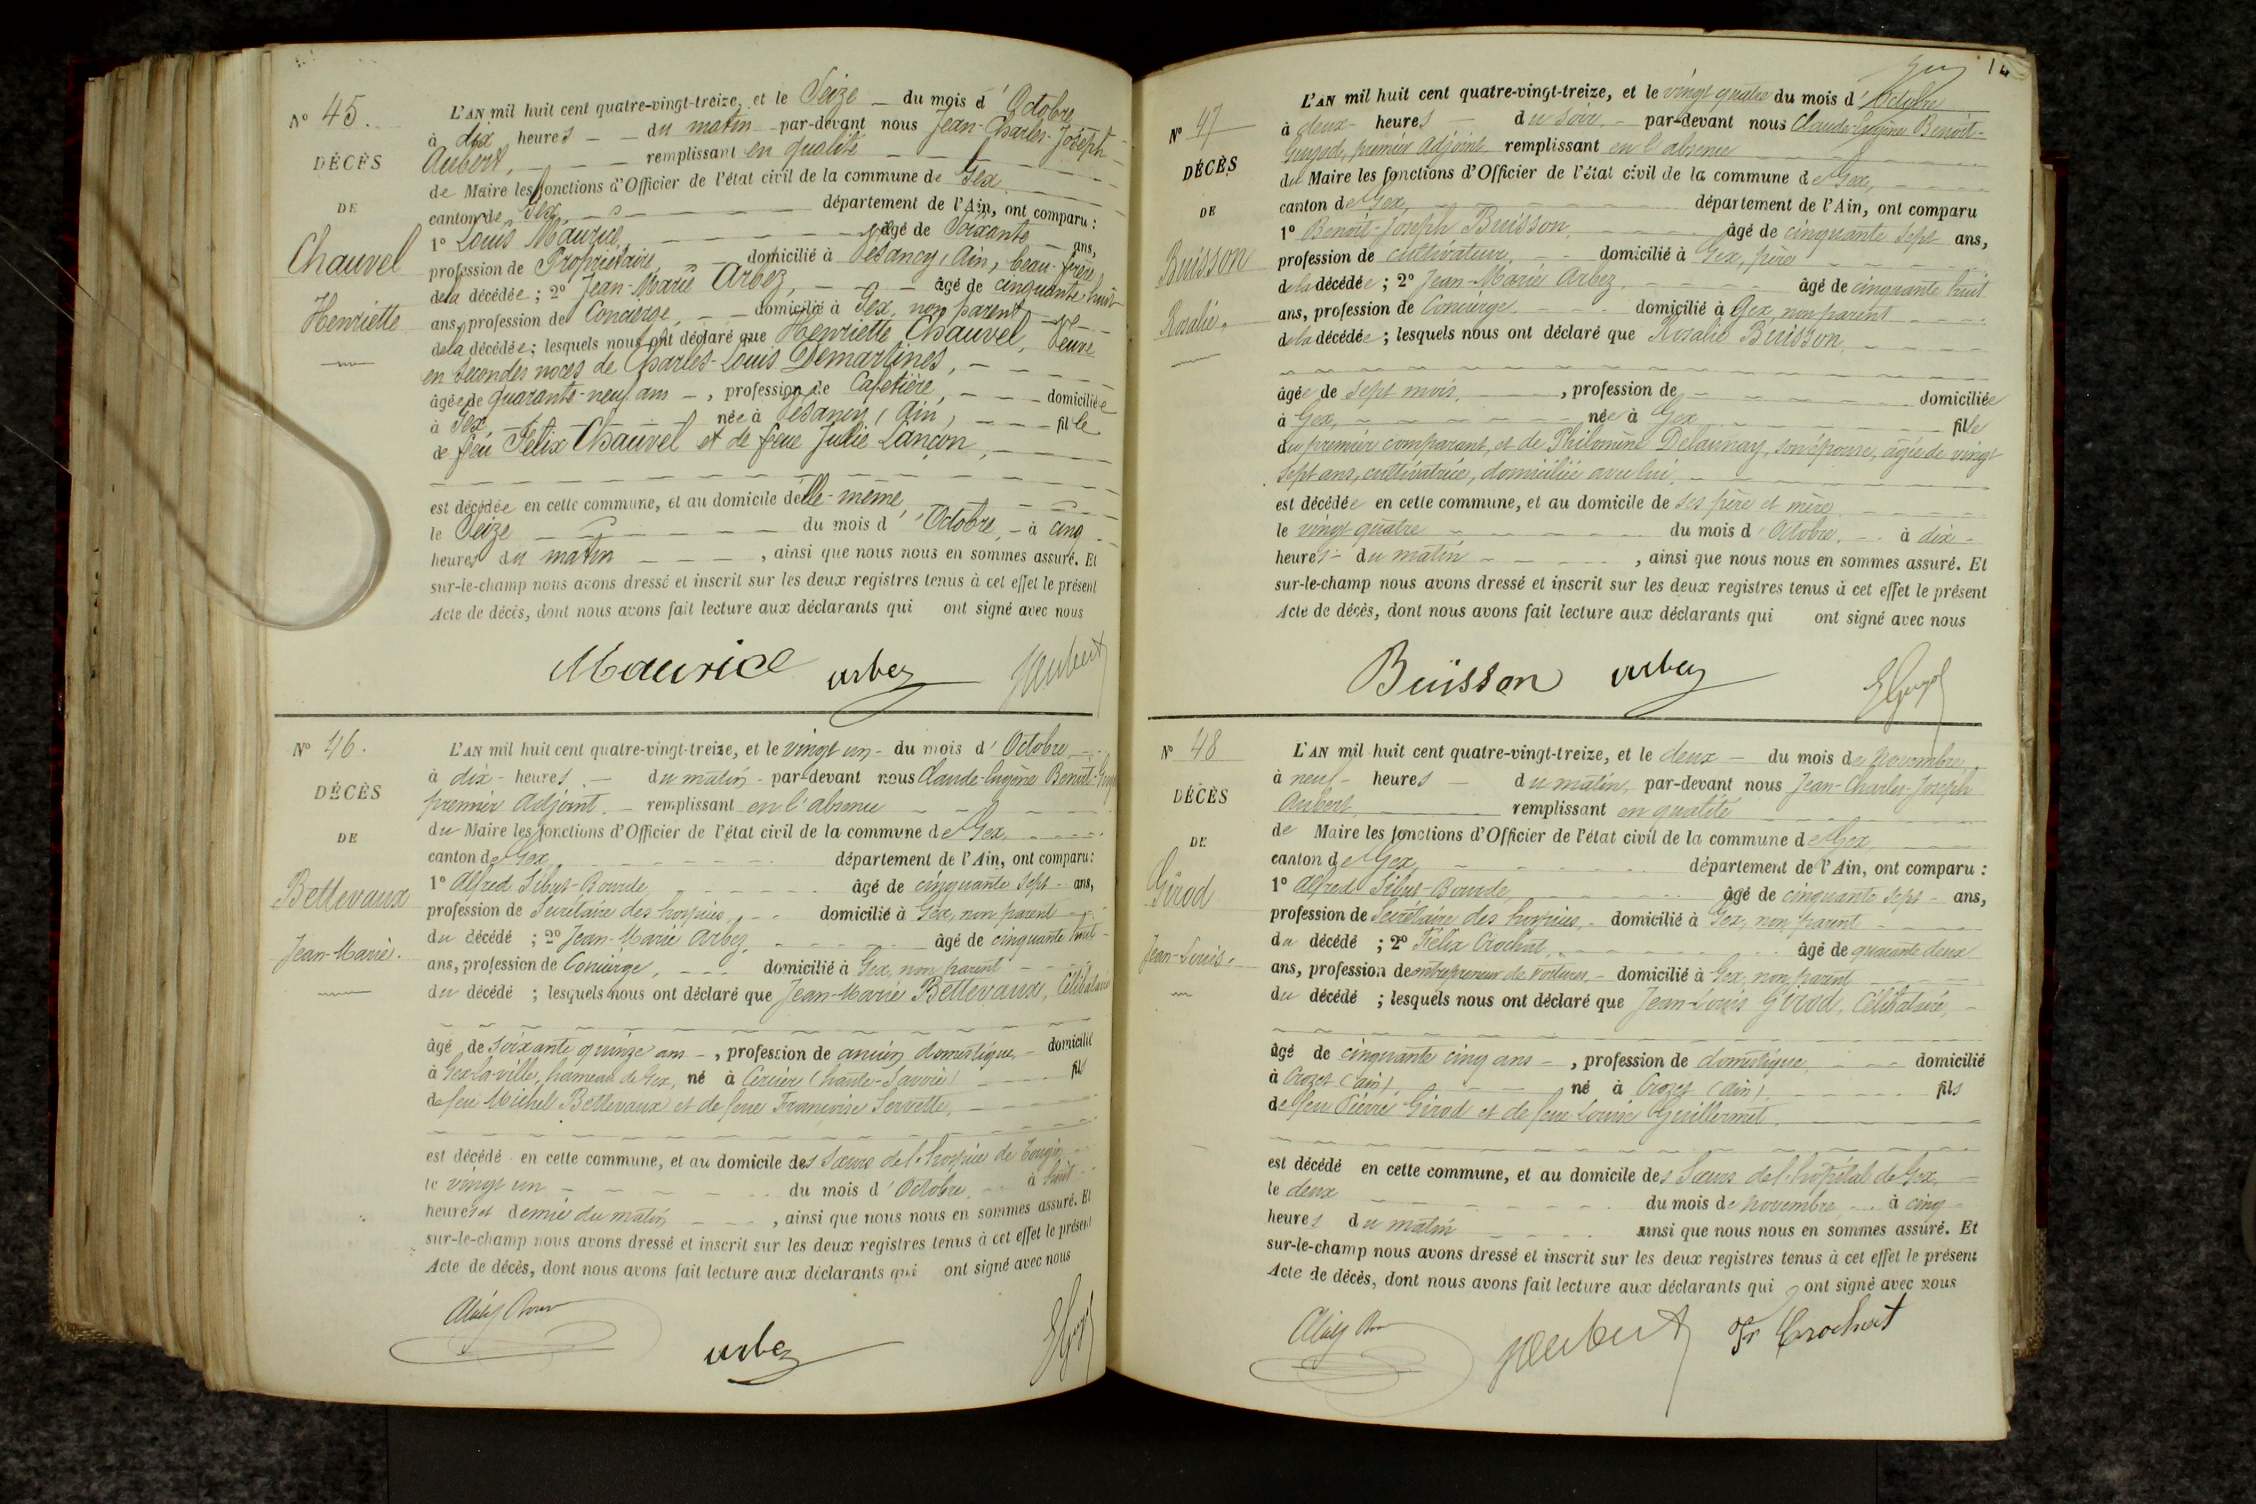 Nº 45.
DÉCÈS
DE
Chauvel
Henriette
L'AN mil huit cent quatre-vingt-treize, et le Seize du mois d'Octobre
à dix heures du matin par-devant nous Jean-Charles-Joseph
Aubert, remplissant en qualité
de Maire les fonctions d'Officier de l'état civil de la commune de Gex
canton de Gex département de l'Ain, ont comparu :
1º Louis Maurice, âgé de Soixante ans,
profession de Propriétaire, domicilié à Vesancy, Ain, beau-frère
de la décédée ; 2º Jean-Marie Arbez, âgé de cinquante huit
ans, profession de Concierge, domicilié à Gex, non parent
de la décédée ; lesquels nous ont déclaré que Henriette Chauvel, Veuve
en secondes noces de Charles-Louis Demartines,
âgée de quarante-neuf ans, profession de Cafetière, domiciliée
à Gex née à Vesancy (Ain) fille
de feu Félix Chauvel et de feue Julie Lançon,
est décédée en cette commune, et au domicile d'elle-même,
le Seize du mois d'Octobre, à cinq
heures du matin, ainsi que nous nous en sommes assuré. Et
sur-le-champ nous avons dressé et inscrit sur les deux registres tenus à cet effet le présent
Acte de décès, dont nous avons fait lecture aux déclarants qui ont signé avec nous
Maurice arbez JAubert
Nº 46.
DÉCÈS
DE
Bettevaux
Jean-Marie.
L'AN mil huit cent quatre-vingt-treize, et le vingt un du mois d'Octobre
à dix heures du matin par-devant nous Claude-Eugène Benoit-
premier adjoint remplissant en l'absence
du Maire les fonctions d'Officier de l'état civil de la commune de Gex
canton de Gex département de l'Ain, ont comparu :
1º Alfred Sibut-Bourde âgé de cinquante sept ans,
profession de Secrétaire des hospices domicilié à Gex, non parent
du décédé ; 2º Jean-Marie Arbez, âgé de cinquante huit
ans, profession de Concierge, domicilié à Gex, non parent
du décédé ; lesquels nous ont déclaré que Jean-Marie Bettevaux, Célibataire
âgé de soixante quinze ans, profession de ancien domestique, domicilié
à Gex-la-ville, hameau de Gex, né à Cercier (haute-Savoie) fils
de feu Michel Bettevaux et de feue Françoise
est décédé en cette commune, et au domicile des Sœurs de l'hospice de Tougin
le vingt un du mois d'Octobre à huit
heures et demie du matin, ainsi que nous nous en sommes assuré. Et
sur-le-champ nous avons dressé et inscrit sur les deux registres tenus à cet effet le présent
Acte de décès, dont nous avons fait lecture aux déclarants qui ont signé avec nous
arbez
Gex
Nº 47
DÉCÈS
DE
Buisson
Rosalie.
L'AN mil huit cent quatre-vingt-treize, et le vingt quatre du mois d'Octobre
à deux heures du soir par-devant nous Claude-Eugène Benoit-
premier Adjoint remplissant en l'absence
du Maire les fonctions d'Officier de l'état civil de la commune de Gex,
canton de Gex, département de l'Ain, ont comparu
1º Benoit-Joseph Buisson, âgé de cinquante sept ans,
profession de cultivateur, domicilié à Gex, père
de la décédée ; 2º Jean-Marie Arbez, âgé de cinquante huit
ans, profession de Concierge domicilié à Gex, non parent
de la décédée ; lesquels nous ont déclaré que Rosalie Buisson,
âgée de sept mois, profession de domiciliée
à Gex, née à Gex fille
du premier comparant, et de Philomène Delaunay, son épouse, âgée de vingt
sept ans, cultivatrice, domiciliée avec lui,
est décédée en cette commune, et au domicile de ses père et mère
le vingt quatre du mois d'Octobre, à dix
heures du matin, ainsi que nous nous en sommes assuré. Et
sur-le-champ nous avons dressé et inscrit sur les deux registres tenus à cet effet le présent
Acte de décès, dont nous avons fait lecture aux déclarants qui ont signé avec nous
Buisson arbez
Nº 48
DÉCÈS
DE
Girod
Jean-Louis.
L'AN mil huit cent quatre-vingt-treize, et le deux du mois de novembre,
à neuf heures du matin, par-devant nous Jean-Charles-Joseph
Aubert remplissant en qualité
de Maire les fonctions d'Officier de l'état civil de la commune de Gex
canton de Gex, département de l'Ain, ont comparu :
1º Alfred Sibut-Bourde, âgé de cinquante sept ans,
profession de Secrétaire des hospices, domicilié à Gex, non parent
du décédé ; 2º Félix Crochat, âgé de quarante deux
ans, profession de entrepreneur de voitures, domicilié à Gex, non parent
du décédé ; lesquels nous ont déclaré que Jean-Louis Girod, Célibataire,
âgé de cinquante cinq ans, profession de domestique domicilié
à Crozet (ain) né à Crozet (ain) fils
de feu Pierre Girod et de feue Louise Guillermet.
est décédé en cette commune, et au domicile des Sœurs de l'hôpital de Gex
le deux du mois de novembre à cinq
heures du matin ainsi que nous nous en sommes assuré. Et
sur-le-champ nous avons dressé et inscrit sur les deux registres tenus à cet effet le présent
Acte de décès, dont nous avons fait lecture aux déclarants qui ont signé avec nous
JAubert